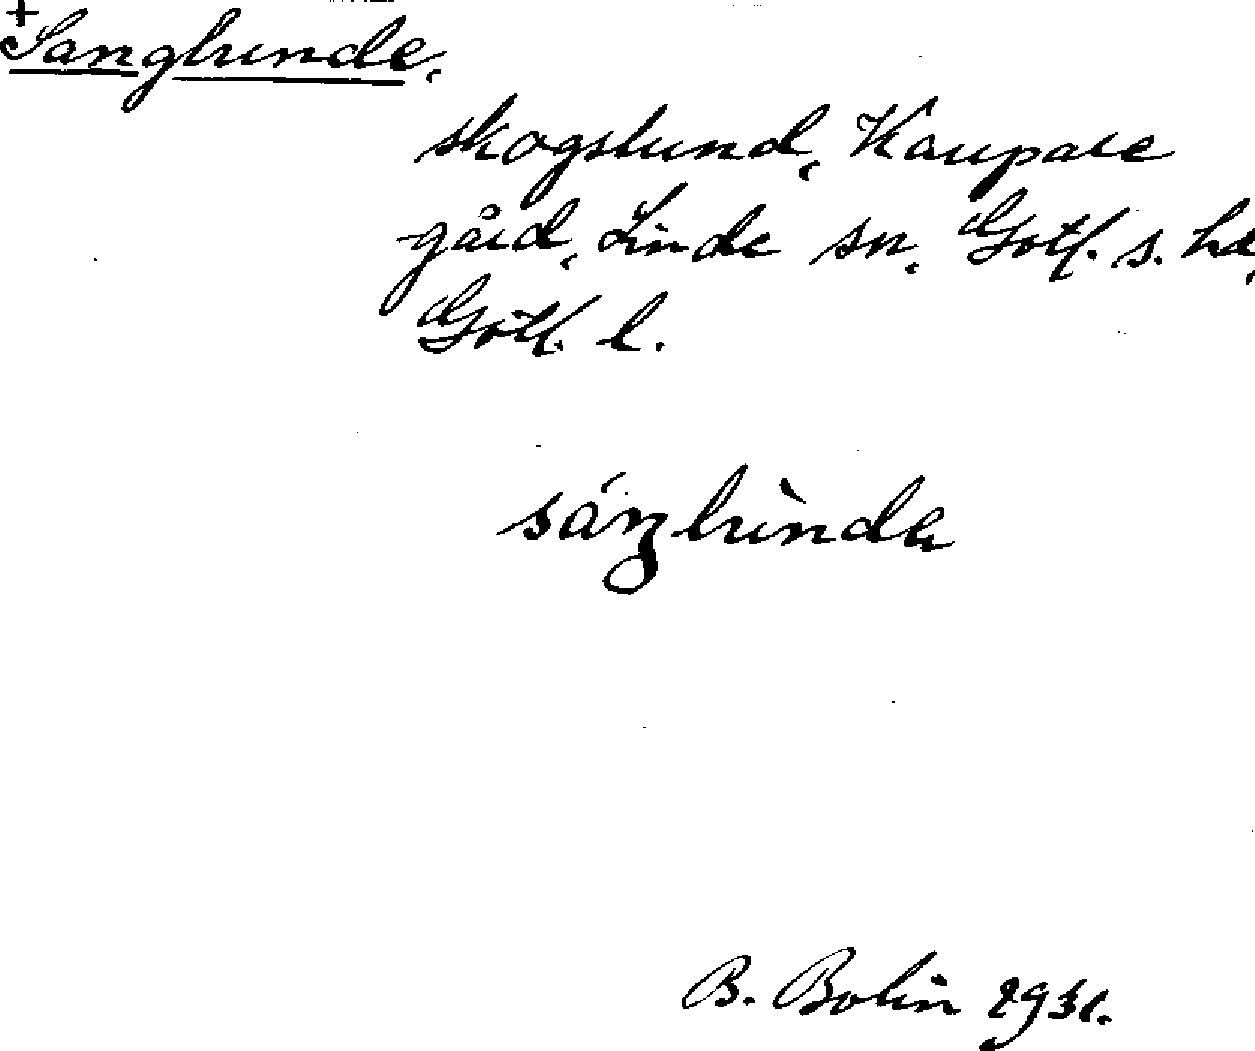 +Sanglunde,
skogslund, Kauparve
gård, Linde sn, Gotl. s. hd,
Gotl. l.
sáŋlùndə
B. Bolin 1931.